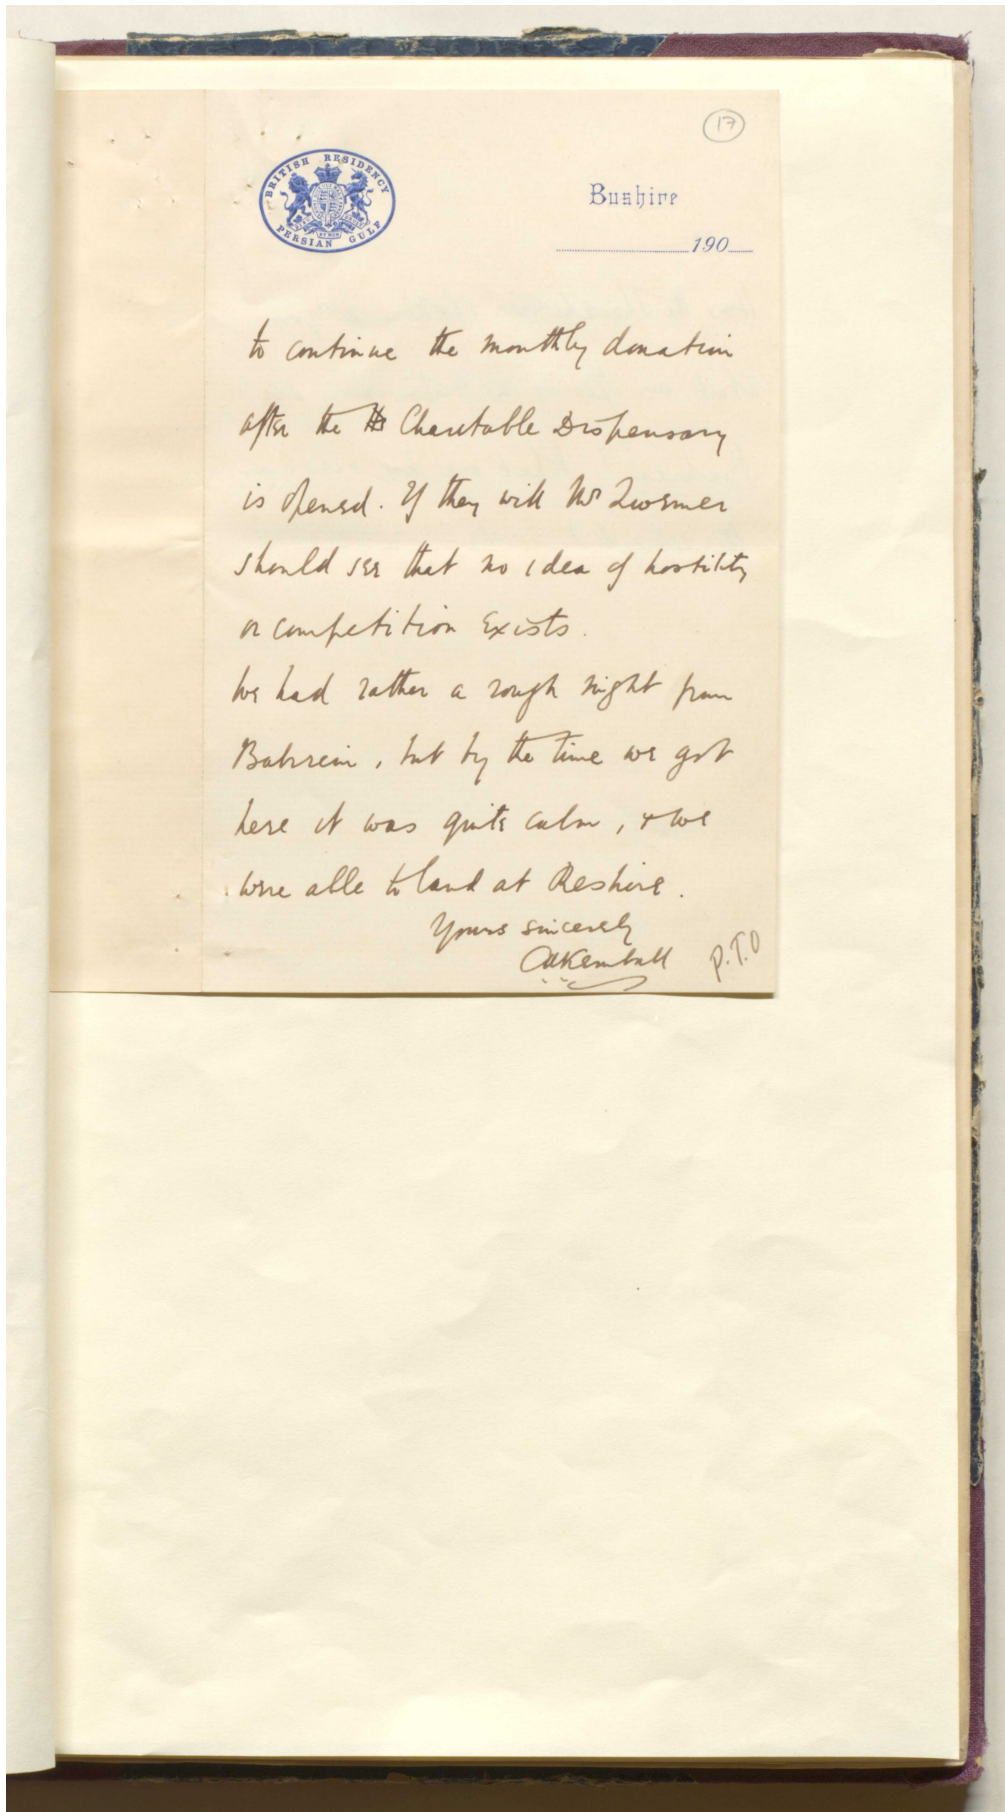 17
BRITISH RESIDENCY
PERSIAN GULF
Bushire
190
to continue the monthly donation
after the Charitable Dispensary
is opened. If they will Mr Zwemer
should see that no idea of hostility
or competition exists.
We had rather a rough night from
Bahrein, but by the time we got
here it was quite calm, & we
were able to land at Reshire.
Yours sincerely
CAKemball
P.T.O